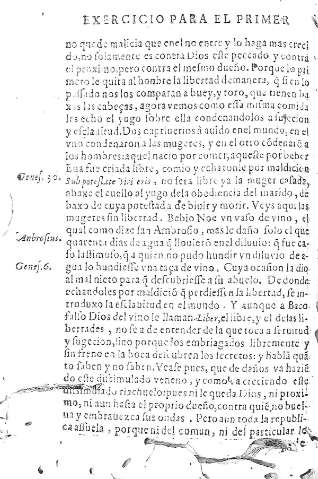 EXERCICIO PARA EL PRIMER
no quede malicia que enel no entre y lo haga mas creci
do, no solamente es contra Dios este peccado y contra
el proximo, pero contra el mesmo dueño. Porque lo pri
mero le quita al hombre la libertad de manera, q̃ si en lo
passado nos los comparan a buey, y toro, que tienen ba
xas las cabeças, agora vemos como essa misma comida
les echo el yugo sobre ella condenandolos a sujecion
y esclauitud. Dos captiuerios à auido en el mundo, en el
vno condenaron a las mugeres, y en el otro cõdenarõ a
los hombres: aquel nacio por comer, aqueste por beber
Genes. 3.
Eua fue criada libre, comio y echaronle por maldicion
Sub potestate viri eris, no sera libre ya la muger casada,
abaxe el cuello al yugo dela obediencia del marido, de
baxo de cuya potestad a de biuir y morir. Veys aqui las
mugeres sin libertad. Bebio Noe vn vaso de vino, el
Ambrosius.
qual como dize san Ambrosio, mas le daño solo el que
quarenta dias de agua q̃ llouierõ enel diluuio: q̃ fue ca-
Genes. 6.
so lastimoso, q̃ a quien no pudo hundir vn diluuio de a-
gua lo hundiesse vna taça de vino. Cuya ocasion la dio
al mal nieto para q̃ descubriesse a su abuelo. De donde
echandoles por maldiciõ q̃ perdiessen la libertad, se in-
troduxo la esclauitud en el mundo. Y aunque a Baco
falso Dios del vino le llaman Liber, el libre, y el de las li
bertades, no se a de entender de la que toca a seruitud
y sugecion, sino porque los embriagados libremente y
sin freno en la boca descubren los secretos: y hablã quã
to saben y no saben. Vease pues, que de daños va hazië
do este dissimulado veneno, y como va creciendo este
dissimulado riachuelo: pues ni le queda Dios, ni proxi
mo, ni aun hasta el proprio dueño, contra quiẽ no buel-
ua y embrauezca sus ondas. Pero aun toda la republi-
ca assuela, porque ni del comun, ni del particular lo